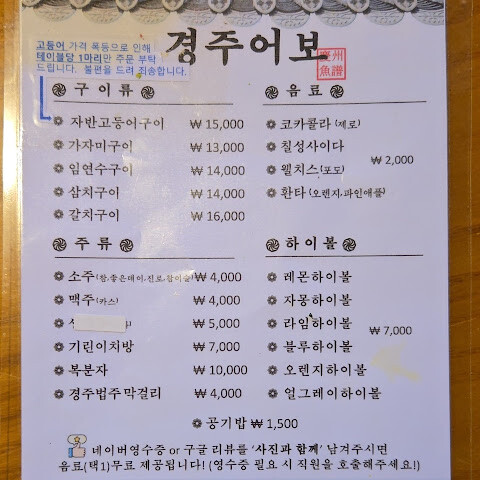 고등어 가격 폭등으로 인해
테이블당 1마리만 주문 부탁
드립니다. 불편을 드려 죄송합니다.
경주어보
慶州
魚譜
구이류
자반고등어구이 ₩ 15,000
가자미구이 ₩ 13,000
임연수구이 ₩ 14,000
삼치구이 ₩ 14,000
갈치구이 ₩ 16,000
음료
코카콜라 (제로)
칠성사이다
웰치스(포도)
환타 (오렌지,파인애플)
₩ 2,000
주류
소주(참,좋은데이,진로,참이슬) ₩ 4,000
맥주 (카스) ₩ 4,000
₩ 5,000
기린이치방 ₩ 7,000
복분자 ₩ 10,000
경주법주막걸리 ₩ 4,000
하이볼
레몬하이볼
자몽하이볼
라임하이볼
블루하이볼
오렌지하이볼
얼그레이하이볼
₩ 7,000
공기밥 ₩ 1,500
네이버영수증 or 구글 리뷰를 '사진과 함께' 남겨주시면
음료(택1)무료 제공됩니다! (영수증 필요 시 직원을 호출해주세요!)